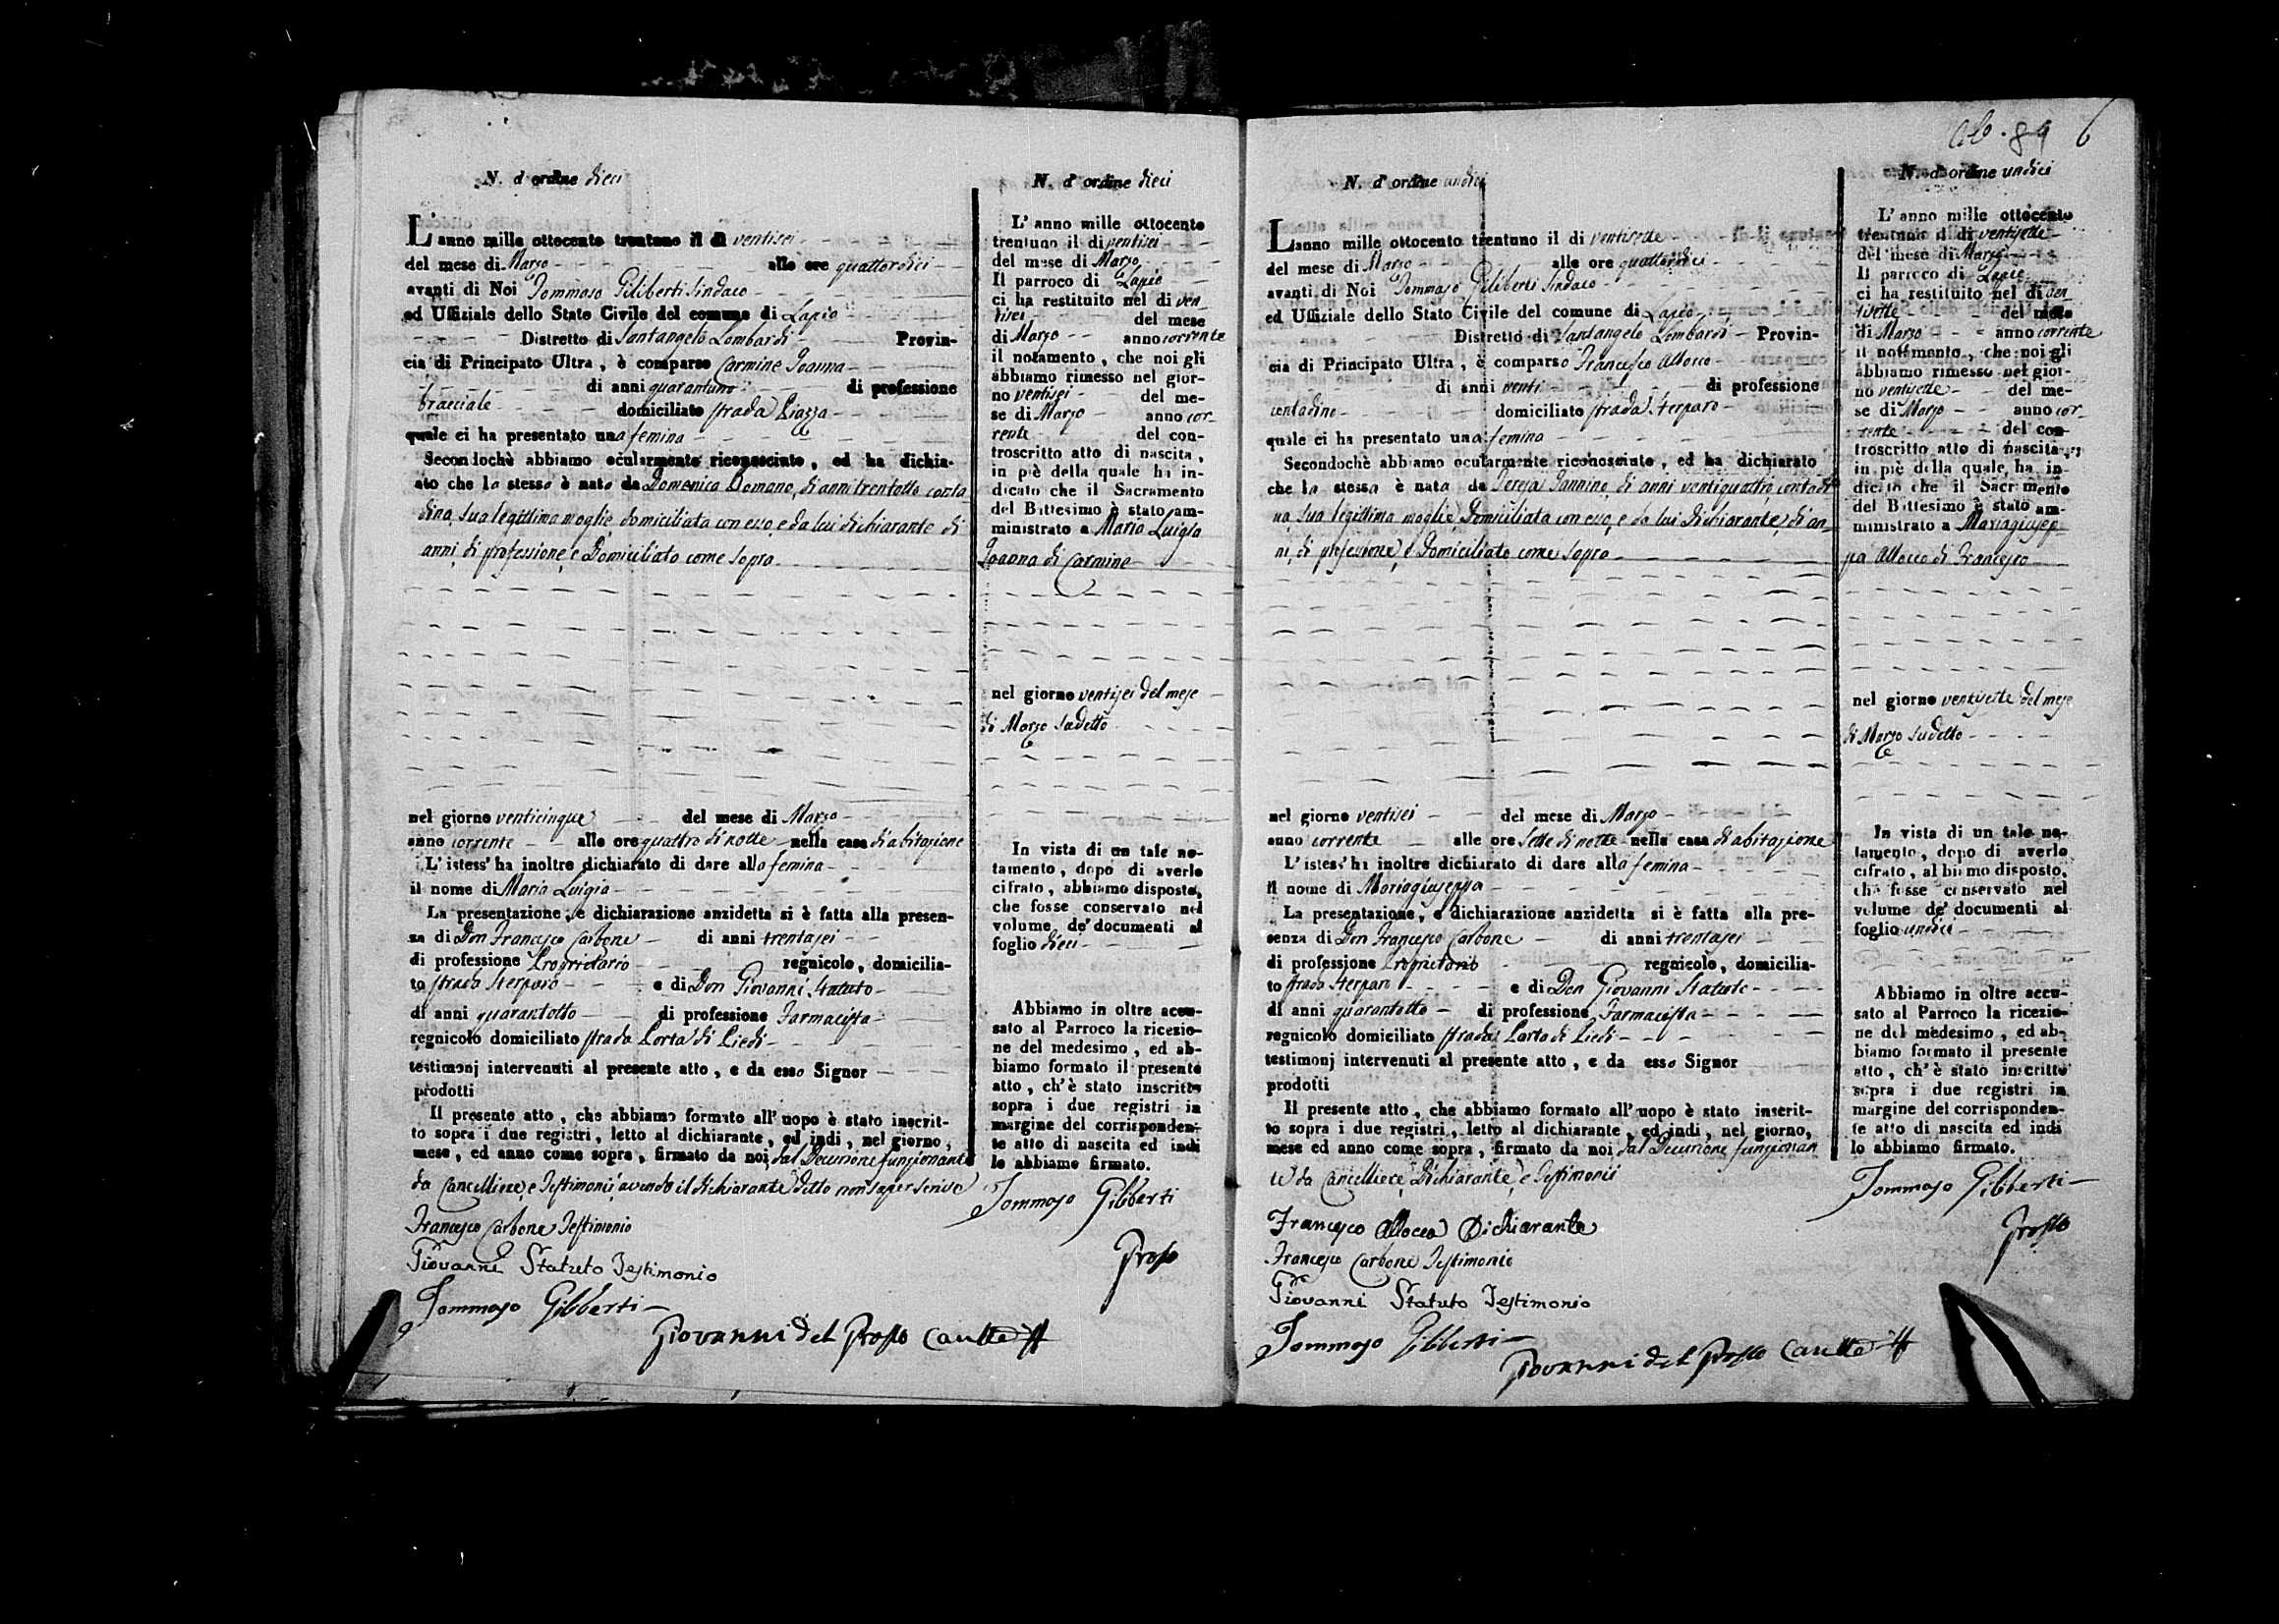 N. d'ordine dieci
L'anno mille ottocento trentuno il dì ventisei
del mese di Marzo alle ore quattordici
avanti di Noi Tommaso Giliberti Sindaco
ed Uffiziale dello Stato Civile del comune di Lapio
Distretto di Santangelo Lombardi Provin-
cia di Principato Ultra, è comparso Carmine Ioanna
di anni quarantuno di professione
bracciale domiciliato strada Piazza
quale ci ha presentato una femina
Secondochè abbiamo ocularmente riconosciuto, ed ha dichia-
ato che la stessa è nata da Domenica Romano, di anni trentotto conta
dina, sua legittima moglie, domiciliata con esso, e da lui dichiarante di
anni, di professione, e Domiciliato come sopra
nel giorno venticinque del mese di Marzo
anno corrente alle ore quattro di notte nella casa di abitazione
L'istess' ha inoltre dichiarato di dare alla femina
il nome di Maria Luigia
La presentazione, e dichiarazione anzidetta si è fatta alla presen-
za di Don Francesco Carbone di anni trentasei
di professione Proprietario regnicolo, domicilia-
to strada Sterparo e di Don Giovanni Statuto
di anni quarantotto di professione Farmacista
regnicolo domiciliato strada Porta di Piedi
testimonj intervenuti al presente atto, e da esso Signor
prodotti
Il presente atto, che abbiamo formato all'uopo è stato inscrit-
to sopra i due registri, letto al dichiarante, ed indi, nel giorno,
mese, ed anno come sopra, firmato da noi, dal Decurione funzionante
da Cancelliere, e Testimonii, avendo il dichiarante detto non saper scrivere
Francesco Carbone Testimonio
Giovanni Statuto Testimonio
Tommaso Giliberti
Giovanni del Prosto
N. d'ordine dieci
L'anno mille ottocento
trentuno il dì ventisei
del mese di Marzo
Il parroco di Lapio
ci ha restituito nel dì ven
tisei del mese
di Marzo anno corrente
il notamento, che noi gli
abbiamo rimesso nel gior-
no ventisei del me-
se di Marzo anno cor-
rente del con-
troscritto atto di nascita,
in piè della quale ha in-
dicato che il Sacramento
del Battesimo è stato am-
ministrato a Maria Luigia
Ioanna di Carmine
nel giorno ventisei del mese
di Marzo sudetto
In vista di un tale no-
tamento, dopo di averlo
cifrato, abbiamo disposto,
che fosse conservato nel
volume de' documenti al
foglio dieci
Abbiamo in oltre accu-
sato al Parroco la ricezio-
ne del medesimo, ed ab-
biamo formato il presente
atto, ch'è stato inscritto
sopra i due registri in
margine del corrisponden-
te atto di nascita ed indi
lo abbiamo firmato.
Tommaso Giliberti
Prosto
6
N. d'ordine undici
L'anno mille ottocento trentuno il di ventisette
del mese di Marzo alle ore quattordici
avanti di Noi Tommaso Giliberti Sindaco
ed Uffiziale dello Stato Civile del comune di Lapio
Distretto di Santangelo Lombardi Provin-
cia di Principato Ultra, è comparso Francesco Allocco
di anni venti di professione
contadino domiciliato strada Sterparo
quale ci ha presentato una femina
Secondochè abbiamo ocularmente riconosciuto, ed ha dichiarato
che la stessa è nata da Teresa Iannino, di anni ventiquattro, contadi
na, sua legittima moglie, Domiciliata con esso, e da lui Dichiarante, di an
ni, di professione, e Domiciliato come sopra
nel giorno ventisei del mese di Marzo
anno corrente alle ore sette di notte nella casa di abitazione
L'istess' ha inoltre dichiarato di dare alla femina
il nome di Mariagiuseppa
La presentazione, e dichiarazione anzidetta si è fatta alla pre-
senza di Don Francesco Carbone di anni trentasei
di professione Proprietario regnicolo, domicilia-
to strada Sterparo e di Don Giovanni Statuto
di anni quarantotto di professione Farmacista
regnicolo domiciliato strada Porta di Piedi
testimonj intervenuti al presente atto, e da esso Signor
prodotti
Il presente atto, che abbiamo formato all'uopo è stato inscrit-
to sopra i due registri, letto al dichiarante, ed indi, nel giorno,
mese ed anno come sopra, firmato da noi, dal Decurione funzionan
te da Cancelliere, Dichiarante, e Testimonii
Francesco Allocco Dichiarante
Francesco Carbone Testimonio
Giovanni Statuto Testimonio
Tommaso Giliberti
Giovanni del Prosto
N. d'ordine undici
L'anno mille ottocento
trentuno il di ventisette
del mese di Marzo
Il parroco di Lapio
ci ha restituito nel di ven
tisette del mese
di Marzo anno corrente
il notamento, che noi gli
abbiamo rimesso nel gior-
no ventisette del me-
se di Marzo anno cor-
rente del con-
troscritto atto di nascita,
in piè della quale, ha in-
dicato che il Sacramento
del Battesimo è stato am-
ministrato a Mariagiusep-
pa Allocco di Francesco
nel giorno ventisette del mese
di Marzo sudetto
In vista di un tale no-
tamento, dopo di averlo
cifrato, abbiamo disposto,
che fosse conservato nel
volume de' documenti al
foglio undici
Abbiamo in oltre accu-
sato al Parroco la ricezio-
ne del medesimo, ed ab-
biamo formato il presente
atto, ch'è stato inscritto
sopra i due registri in
margine del corrisponden-
te atto di nascita ed indi
lo abbiamo firmato.
Tommaso Giliberti
Prosto